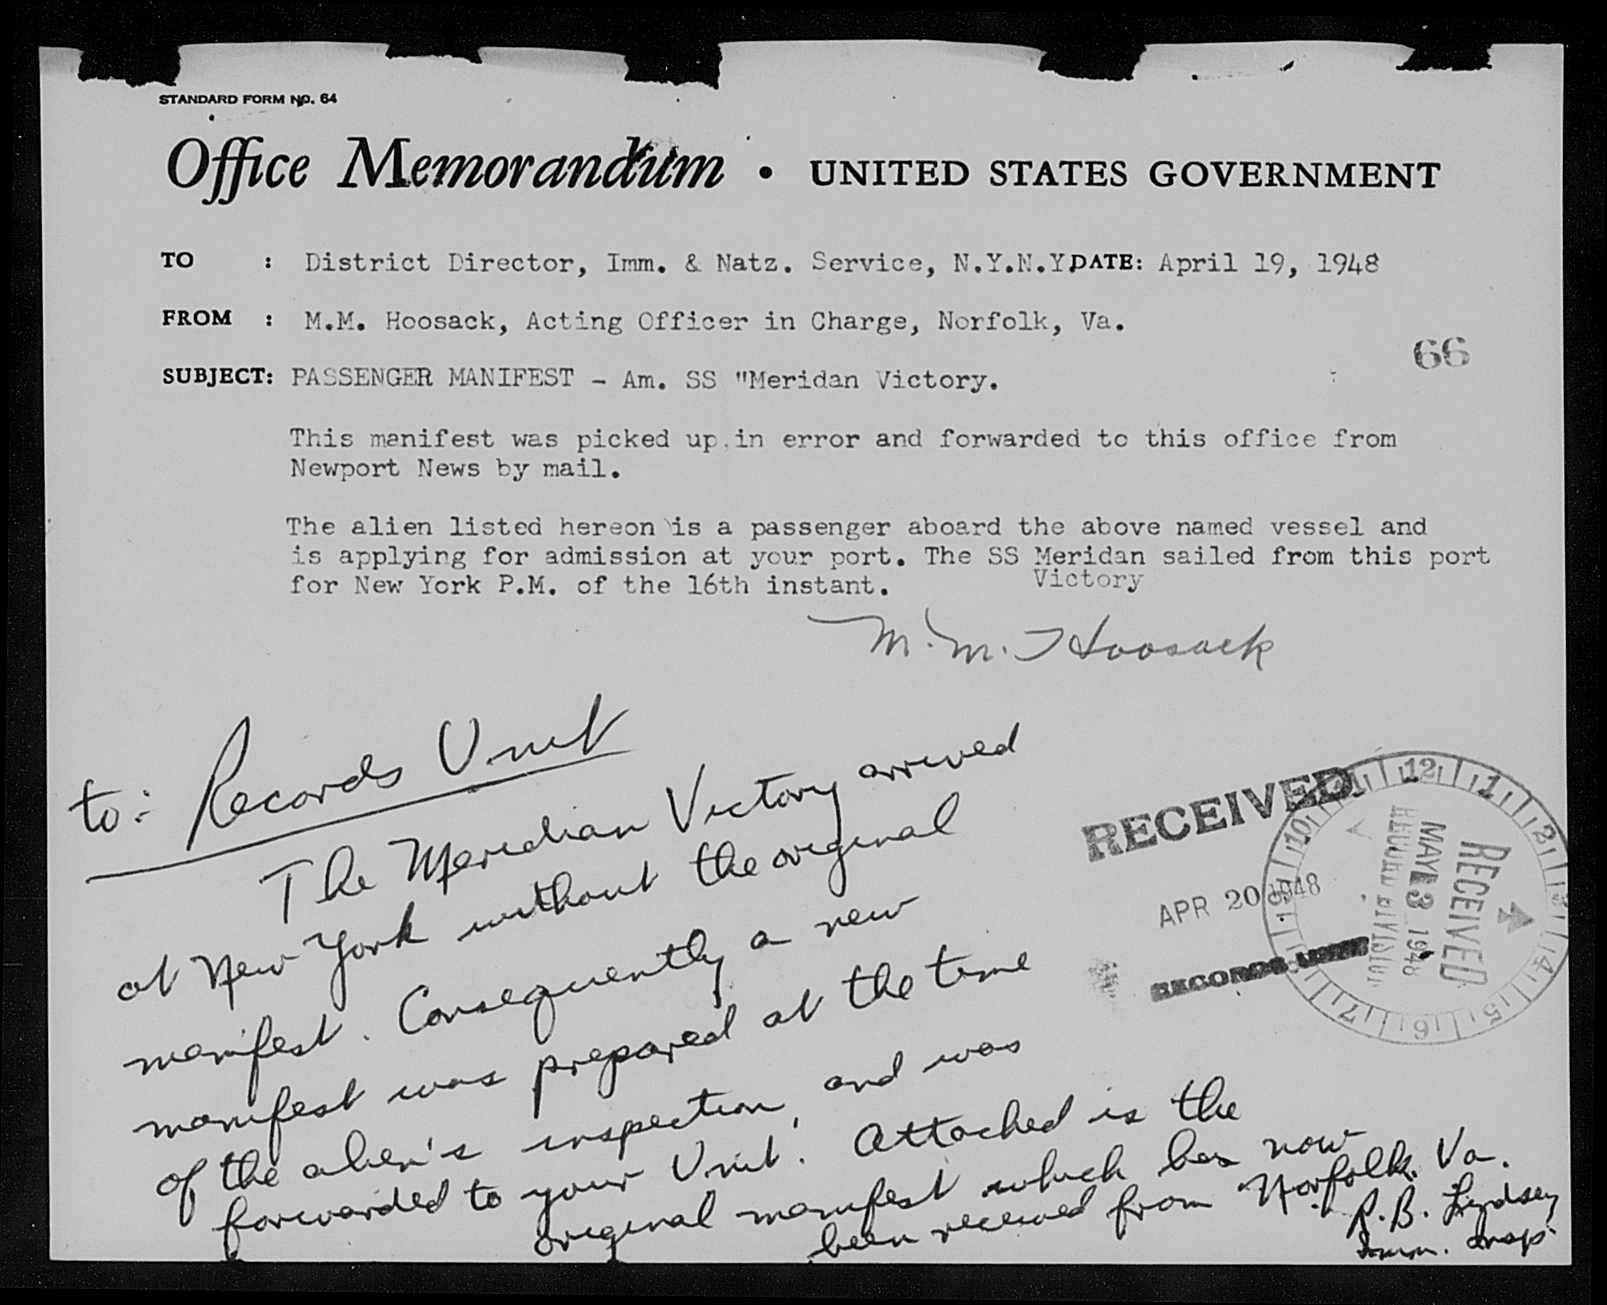 STANDARD FORM NO. 64
Office Memorandum • UNITED STATES GOVERNMENT
TO : District Director, Imm. & Natz. Service, N.Y.N.Y. DATE: April 19, 1948
FROM : M.M. Hoosack, Acting Officer in Charge, Norfolk, Va.
66
SUBJECT: PASSENGER MANIFEST - Am. SS "Meridan Victory.
This manifest was picked up in error and forwarded to this office from
Newport News by mail.
The alien listed hereon is a passenger aboard the above named vessel and
is applying for admission at your port. The SS Meridan sailed from this port
Victory
for New York P.M. of the 16th instant.
M. M. Hoosack
to: Records Unit
The Meridian Victory arrived
at New York without the original
manifest. Consequently a new
manifest was prepared at the time
of the alien's inspection, and was
forwarded to your Unit. Attached is the
original manifest which has now
been received from Norfolk, Va.
R. B. Lindsey
Imm. Insp.
RECEIVED
APR 20 1948
RECORDS UNIT
RECEIVED
MAY 3 1948
RECORD DIVISION
12 1 2 3 4 5 6 7 9 10 11